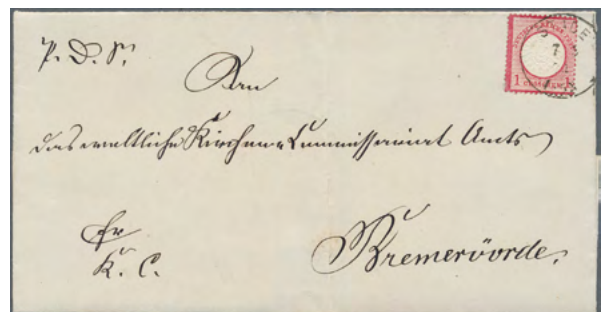 P. D. S.
An
das weltliche Kirchen-Commissariat Amts
Bremervörde.
fr
K. C.